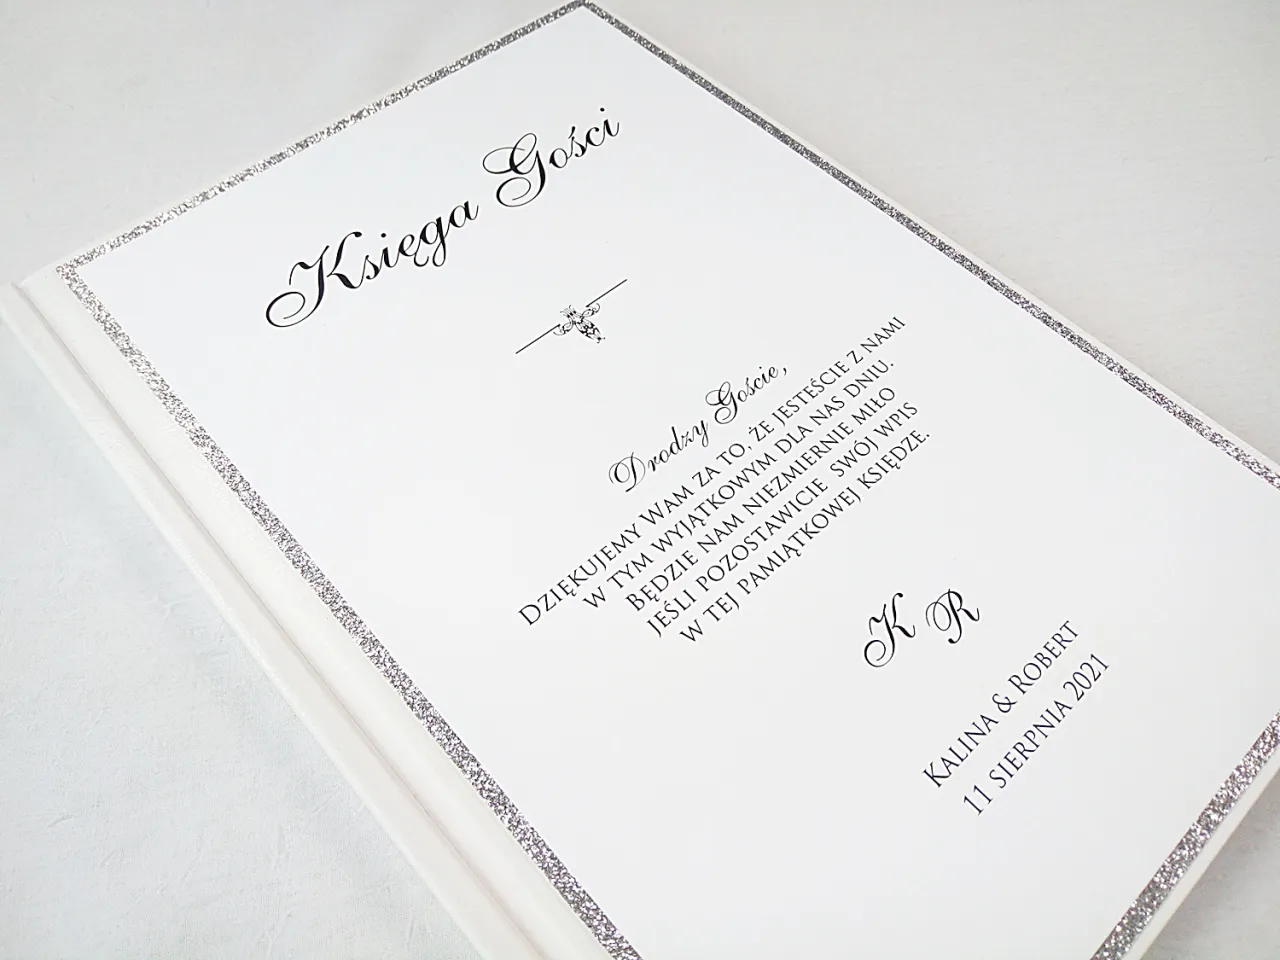 Księga Gości
Drodzy Goście,
DZIĘKUJEMY WAM ZA TO, ŻE JESTEŚCIE Z NAMI
W TYM WYJĄTKOWYM DLA NAS DNIU.
BĘDZIE NAM NIEZMIERNIE MIŁO
JEŚLI POZOSTAWICIE SWÓJ WPIS
W TEJ PAMIĄTKOWEJ KSIĘDZE.
K R
KALINA & ROBERT
11 SIERPNIA 2021